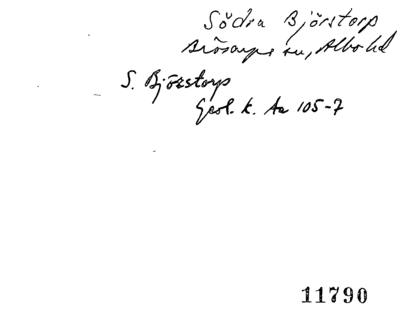 Södra Björstorp
Brösarps sn, Albo hd
S. Björstorp
Geol. k. Aa 105-7
11790